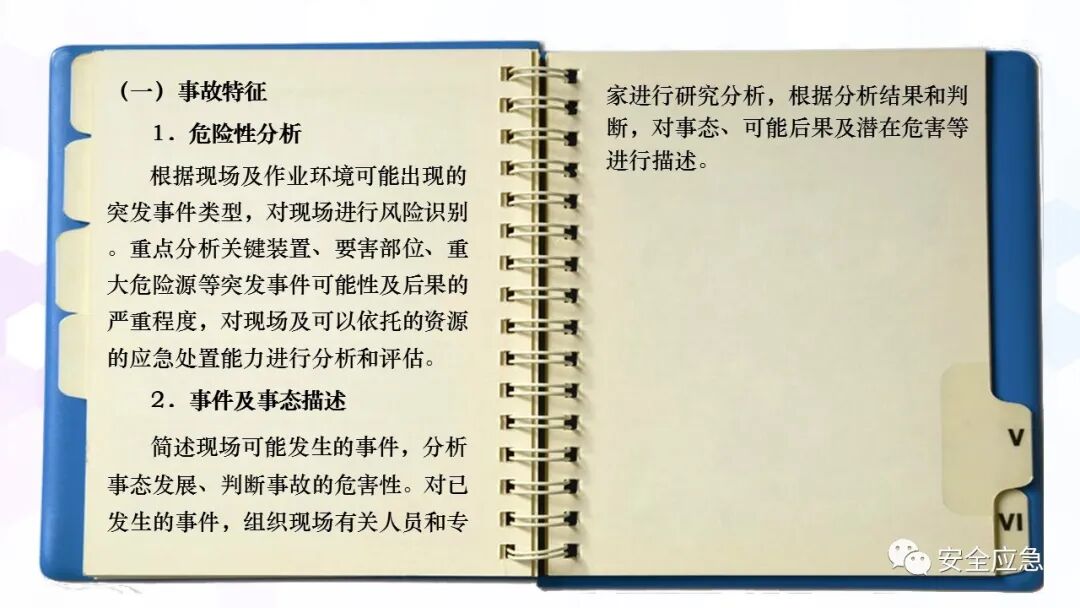 （一）事故特征
1．危险性分析
根据现场及作业环境可能出现的
突发事件类型，对现场进行风险识别
。重点分析关键装置、要害部位、重
大危险源等突发事件可能性及后果的
严重程度，对现场及可以依托的资源
的应急处置能力进行分析和评估。
2．事件及事态描述
简述现场可能发生的事件，分析
事态发展、判断事故的危害性。对已
发生的事件，组织现场有关人员和专
家进行研究分析，根据分析结果和判
断，对事态、可能后果及潜在危害等
进行描述。
V
VI
安全应急